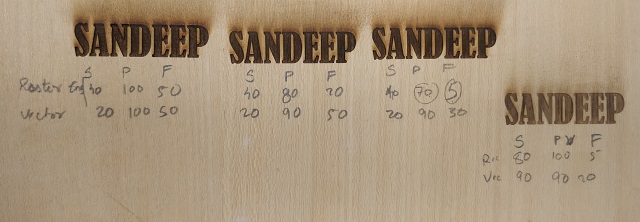 SANDEEP SANDEEP SANDEEP
S P F S P F S P F
Raster 40 100 50 40 80 20 40 70 5
Vector 20 100 50 20 90 50 20 90 30
SANDEEP
S P F
80 100 5
Vec 90 90 20